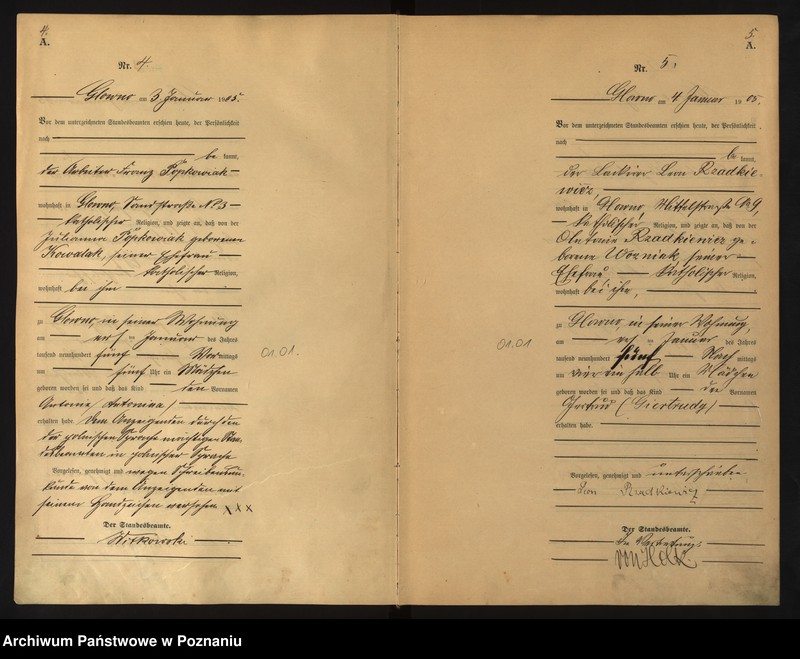 4.
A.
Nr. 4.
Glowno am 3 Januar 1905.
Vor dem unterzeichneten Standesbeamten erschien heute, der Persönlichkeit
nach
be kannt,
der Arbeiter Franz Pöpkowiak
wohnhaft in Glowno, Sandstraße No 3
katholischer Religion, und zeigte an, daß von der
Julianna Pöpkowiak geborenen
Kowalak, seiner Ehefrau
katholischer Religion,
wohnhaft bei ihm
zu Glowno, in seiner Wohnung
am ersten Januar des Jahres
tausend neunhundert fünf Vormittags
um fünf Uhr ein Mädchen
geboren worden sei und daß das Kind den Vornamen
Antonie (Antonina)
erhalten habe. Dem Anzeigenden durch den
der polnischen Sprache mächtigen Stan-
desbeamten in polnischer Sprache
Vorgelesen, genehmigt und wegen Schreibensun-
kunde von dem Anzeigenden mit
seinem Handzeichen versehen. XXX
Der Standesbeamte.
Witkowski
01.01.
5.
A.
Nr. 5.
Glowno am 4 Januar 1905.
Vor dem unterzeichneten Standesbeamten erschien heute, der Persönlichkeit
nach
be kannt,
der Leon Rzadkie-
wicz
wohnhaft in Glowno Mittelstraße No 9,
katholischer Religion, und zeigte an, daß von der
Rzadkiewicz ge-
borene Wozniak seiner
Ehefrau katholischer Religion,
wohnhaft bei ihm,
zu Glowno, in seiner Wohnung,
am Januar des Jahres
tausend neunhundert fünf Nachmittags
um vier ein halb Uhr ein Mädchen
geboren worden sei und daß das Kind den Vornamen
Gertrud (Giertrudy)
erhalten habe.
Vorgelesen, genehmigt und unterschrieben
Leon Rzadkiewicz
Der Standesbeamte.
In Vertretung:
von Holk.
01.01
Archiwum Państwowe w Poznaniu